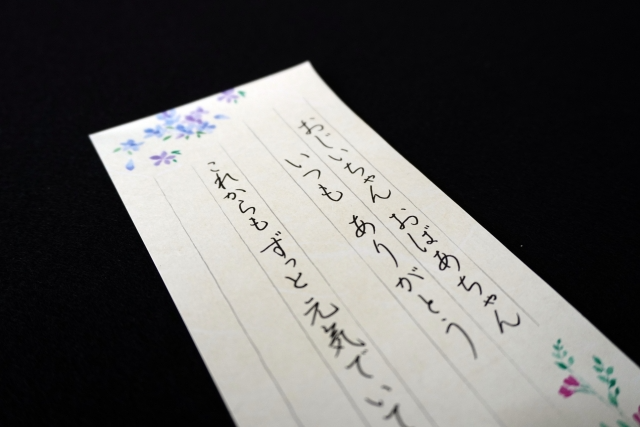 おじいちゃん おばあちゃん
いつも ありがとう
これからも ずっと 元気でいて